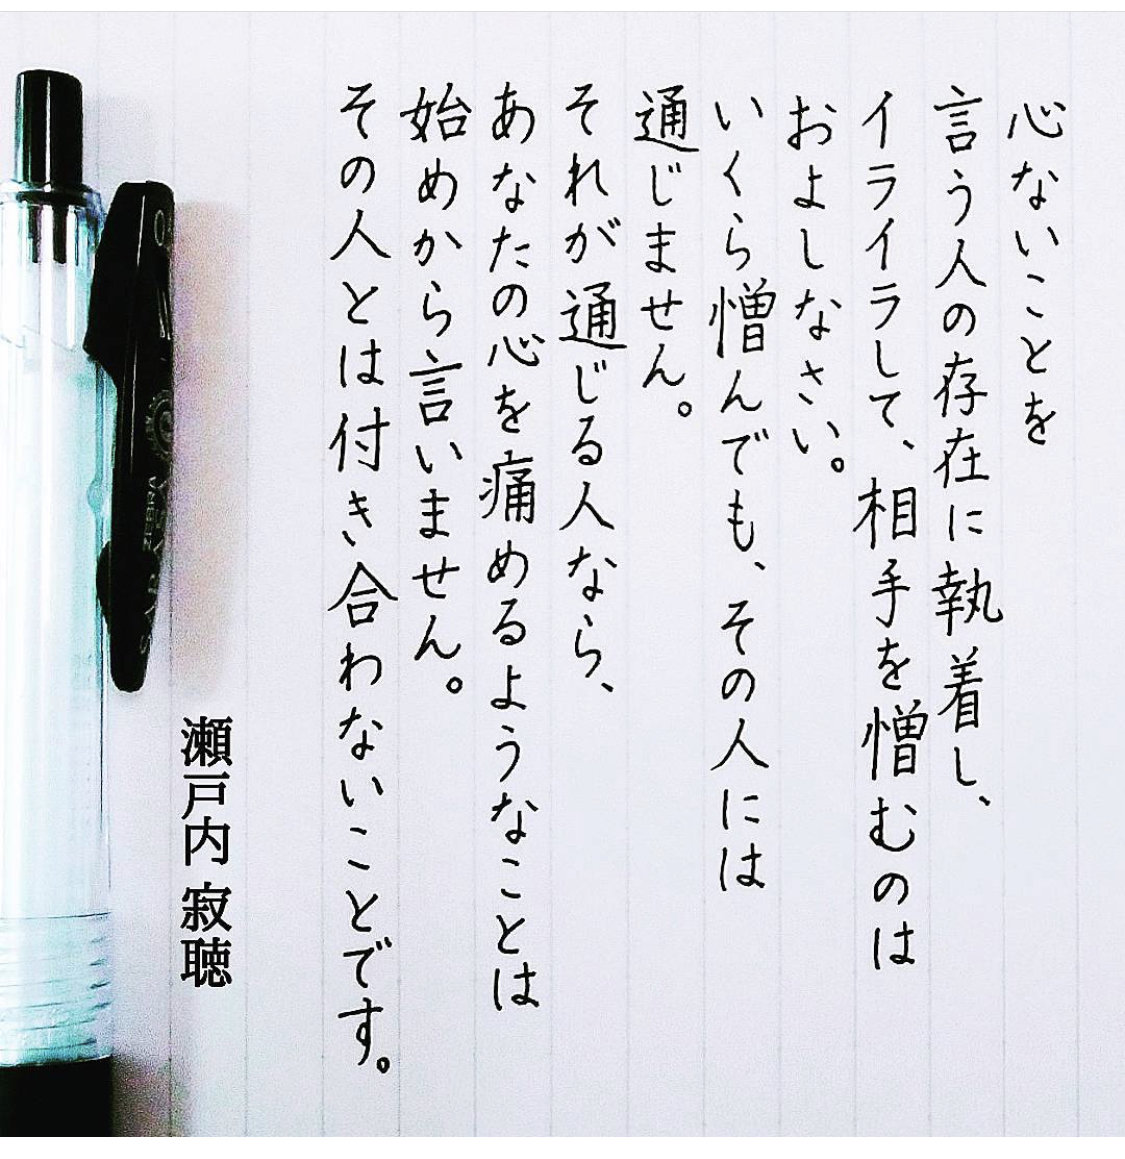 心ないことを
言う人の存在に執着し、
イライラして、相手を憎むのは
およしなさい。
いくら憎んでも、その人には
通じません。
それが通じる人なら、
あなたの心を痛めるようなことは
始めから言いません。
その人とは付き合わないことです。
瀬戸内 寂聴